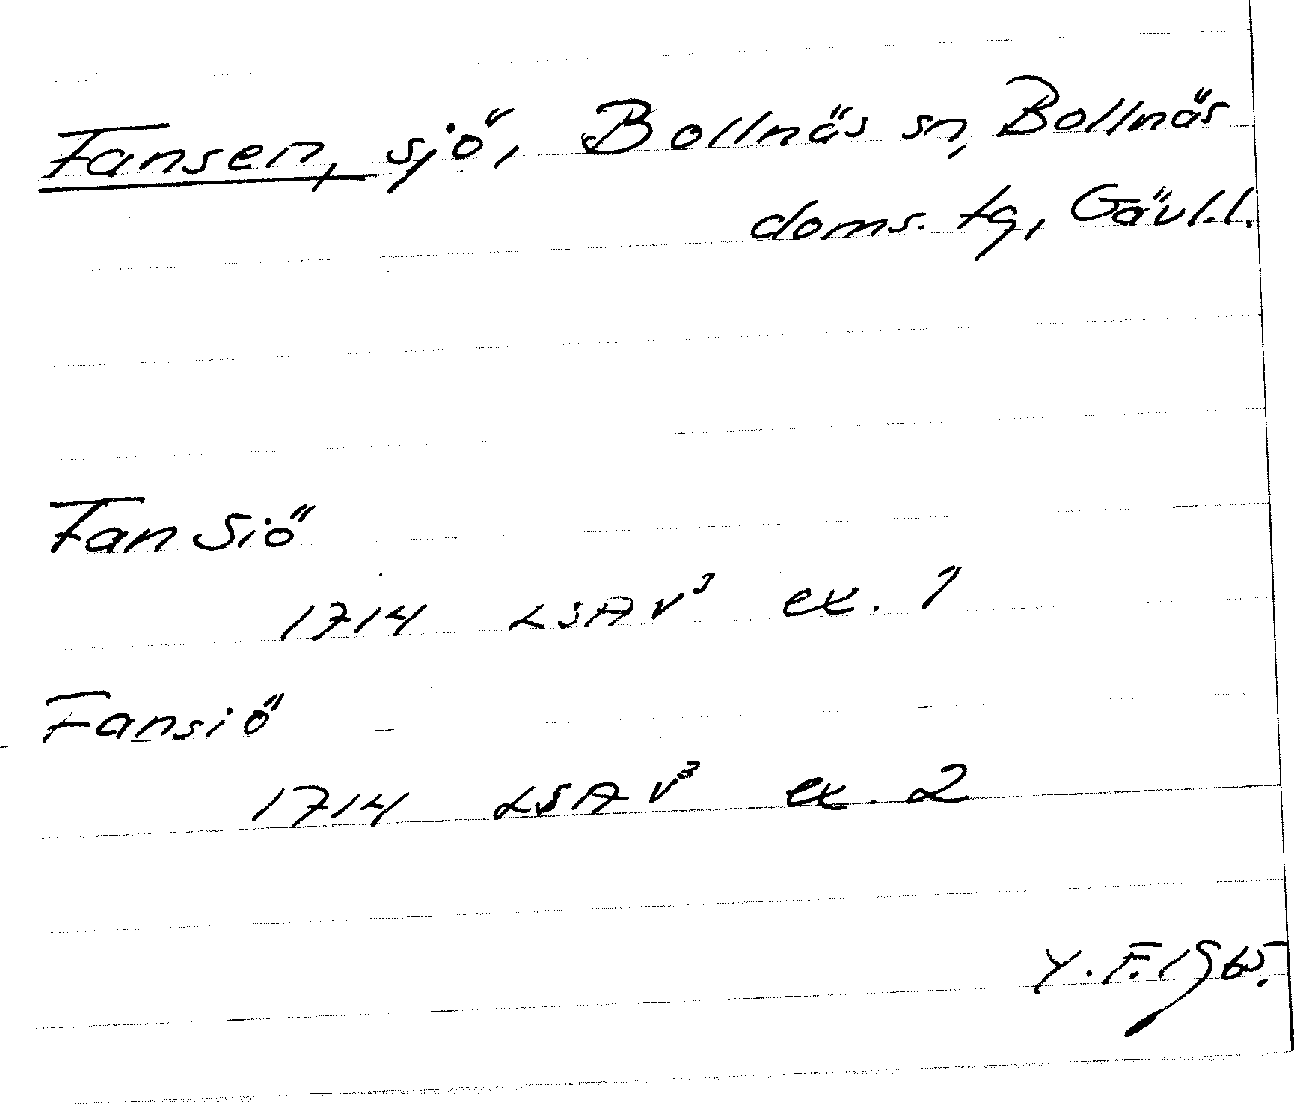 Fansen, sjö, Bollnäs sn, Bollnäs
doms. tg, Gävl.l.
Fan Siö
1714 LSA V³ ex. 1
Fansiö
1714 LSA V³ ex. 2
Y. F. 1965.